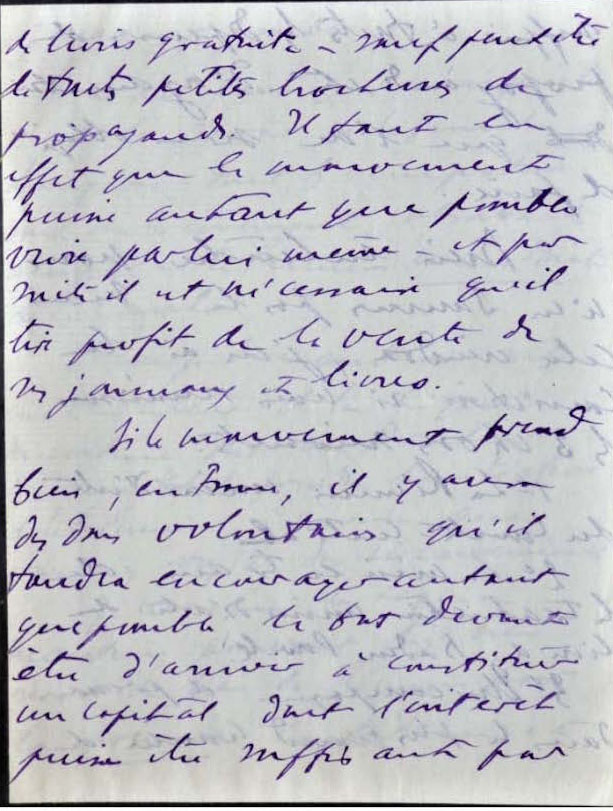 de livres gratuite – sauf peut être
de toutes petites brochures de
propagande. Il faut en
effet que le mouvement
puisse autant que possible
vivre par lui même et par
suite il est nécessaire qu'il
tire profit de la vente de
ses journaux et livres.
Si le mouvement prend
bien, en France, il y aura
des dons volontaires qu'il
faudra encourager autant
que possible le but devant
être d'arriver à constituer
un capital dont l'intérêt
puisse être suffisante par